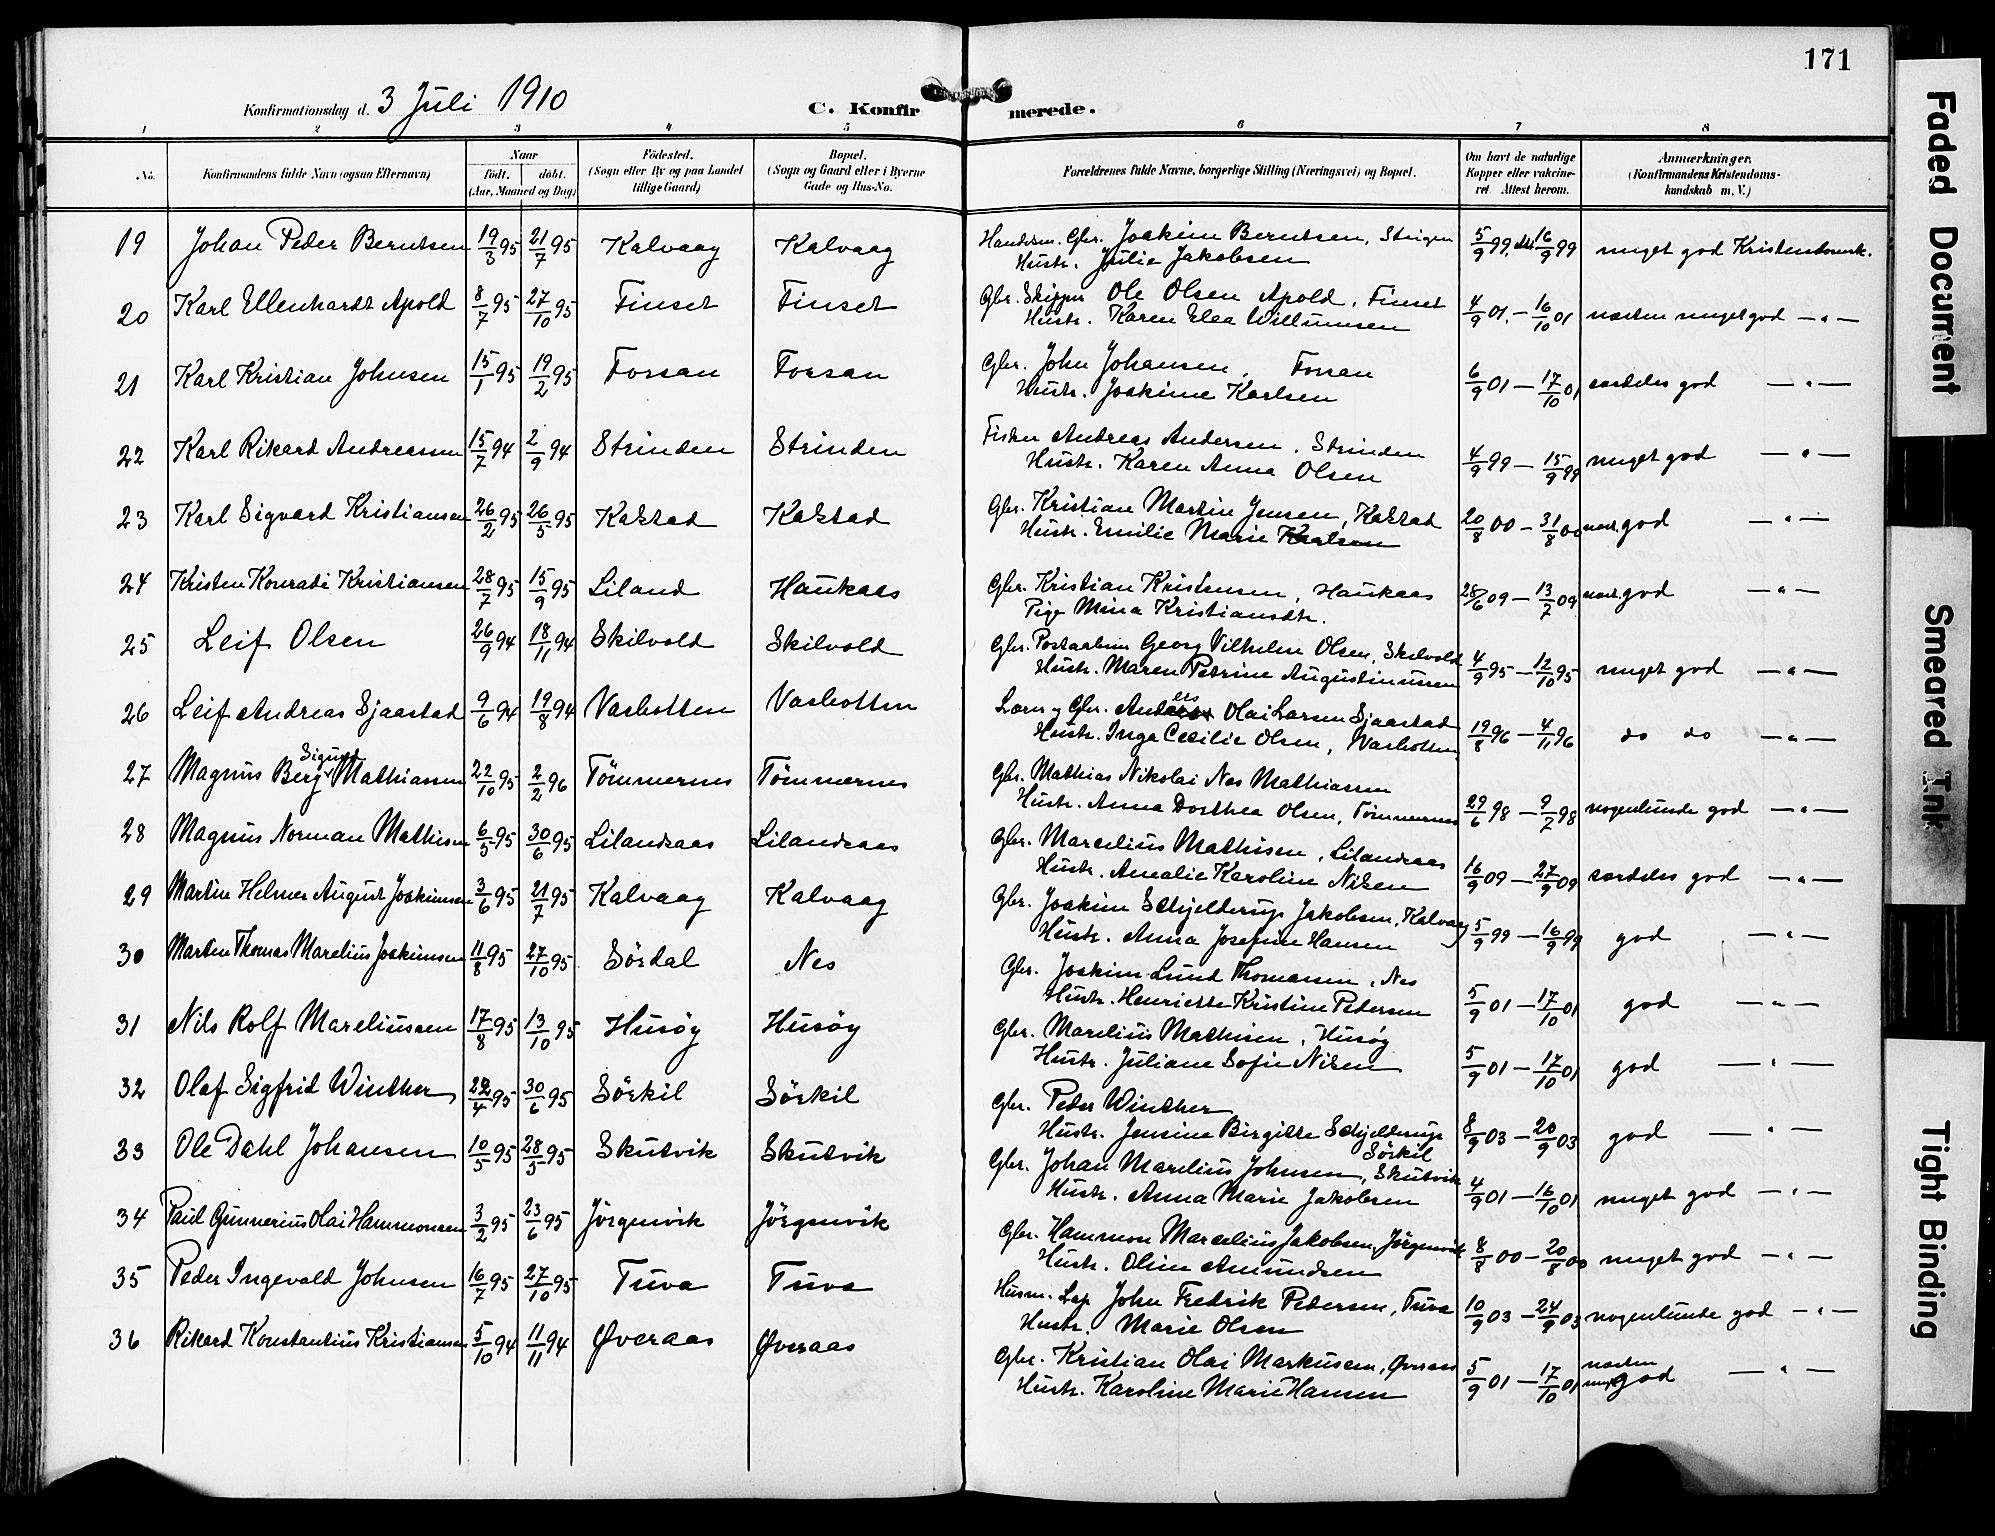 171
Konfirmationsdag d. 3 Juli 1910
C. Konfirmerede.
1 2 3 4 5 6 7 8
No. Konfirmandens fulde Navn (ogsaa Efternavn) Naar født. døbt. (Aar, Maaned og Dag) Fødested. (Sogn eller By og paa Landet tillige Gaard) Bopæl. (Sogn og Gaard eller i Byerne Gade og Hus-No. Forældrenes fulde Navne, borgerlige Stilling (Næringsvei) og Bopæl. Om havt de naturlige Kopper eller vakcineret. Attest herom. Anmærkninger. (Konfirmandens Kristendomskundskab m. V.)
19 Johan Peder Berntsen 19/3 95 21/7 95 Kalvaag Kalvaag Gbr. Joakim Berntsen, Hustr. Julie Jakobsen 5/9 99 16/9 99 meget god Kristendomsk.
20 Karl Ellenhardt Apold 8/7 95 27/10 95 Finset Finset Gbr. Skipper Ole Olsen Apold, Finset Hustr. Karen Elea Willumsen 4/9 01 — 16/10 01 næsten meget god — " —
21 Karl Kristian Johnsen 15/1 95 19/2 95 Forsan Forsan Gbr. John Johansen, Forsan Hustr. Joakime Karlsen 6/9 01 — 17/10 01 særdeles god — " —
22 Karl Rikard Andreassen 15/7 94 2/9 94 Strinden Strinden Fisker Andreas Andersen, Strinden Hustr. Karen Anna Olsen 4/9 99 — 15/9 99 meget god — " —
23 Karl Sigvard Kristiansen 26/2 95 26/5 95 Kakstad Kakstad Gbr. Kristian Martin Jensen, Kakstad Hustr. Emilie Marie Karlsen 20/8 00 — 31/8 00 næst. god — " —
24 Kristen Konradi Kristiansen 28/7 95 15/9 95 Liland Haukaas Gbr. Kristian Kristensen, Haukaas Pige Mina Kristiansdtr. 28/6 09 — 13/7 09 næst. god — " —
25 Leif Olsen 26/9 94 18/11 94 Skilvold Skilvold Gbr. Postaabner Georg Vilhelm Olsen, Skilvold Hustr. Maren Petrine Augustinussen 4/9 95 — 12/10 95 meget god — " —
26 Leif Andreas Sjaastad 9/6 94 19/8 94 Vasbotten Vasbotten Lærer og Gbr. Olai Larsen Sjaastad Hustr. Inga Cecilie Olsen, Vasbotten 19/8 96 — 4/11 96 do do — " —
27 Magnus Berg Sigurd Mathiassen 22/10 95 2/2 96 Tömmernes Tömmernes Gbr. Mathias Nikolai Nes Mathiassen Hustr. Anna Dorthea Olsen, Tömmernes 29/6 98 — 9/7 98 nogenlunde god — " —
28 Magnus Norman Mathisen 6/5 95 30/6 95 Lilandsaas Lilandsaas Gbr. Marcelius Mathisen, Lilandsaas Hustr. Amalie Karoline Nilsen 16/9 09 — 27/9 09 særdeles god — " —
29 Martin Helmer August Joakimsen 3/6 95 21/7 95 Kalvaag Kalvaag Gbr. Joakim Schjelderup Jakobsen, Kalvaag Hustr. Anna Josefine Hansen 5/9 99 — 16/9 99 god — " —
30 Martin Thomas Marelius Joakimsen 11/8 95 27/10 95 Sördal Nes Gbr. Joakim Lund Thomassen, Nes Hustr. Henriette Kristine Pedersen 5/9 01 — 17/10 01 god — " —
31 Nils Rolf Mareliussen 17/8 95 13/10 95 Husöy Husöy Gbr. Marelius Mathisen, Husøy Hustr. Juliane Sofie Nilsen 5/9 01 — 17/10 01 god — " —
32 Olaf Sigfrid Winther 22/4 95 30/6 95 Sörkil Sörkil Gbr. Peder Winther Hustr. Jensine Birgitte Schjelderup Sörkil 8/9 03 — 20/9 03 god — " —
33 Ole Dahl Johansen 10/5 95 28/5 95 Skutvik Skutvik Gbr. Johan Marelius Johnsen, Skutvik Hustr. Anna Marie Jakobsen 4/9 01 — 16/10 01 meget god — " —
34 Paul Gunnerius Olai Hammonsen 3/2 95 23/6 95 Jörgenvik Jörgenvik Gbr. Hammon Marcelius Jakobsen, Jörgenvik Hustr. Oline Amundsen 8/8 00 — 20/8 00 meget god — " —
35 Peder Ingevald Johnsen 16/7 95 27/10 95 Tuva Tuva Husm. Lap John Fredrik Pedersen, Tuva Hustr. Marie Olsen 10/9 03 — 24/9 03 nogenlunde god — " —
36 Rikard Konstantius Kristiansen 5/10 94 11/11 94 Øveraas Øveraas Gbr. Kristian Olai Markussen, Øveraas Hustr. Karoline Marie Hansen 5/9 01 — 17/10 01 næsten meget god — " —
Faded Document
Smeared Ink
Tight Binding